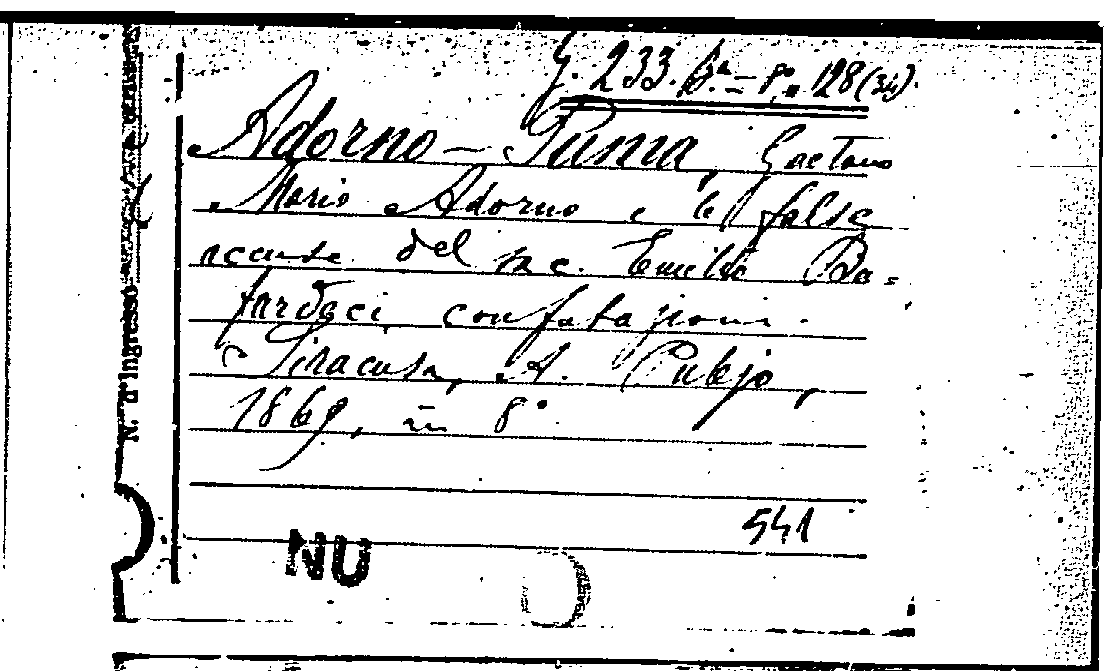 233. 128 (34).
Adorno - Pania, Gaetano
Mario Adorno e le false
accuse del sac. Emilio Bu=
fardeci confutazioni.
Siracusa, A. Pulejo,
1869, in 8°
541
NU
N. d'Ingresso